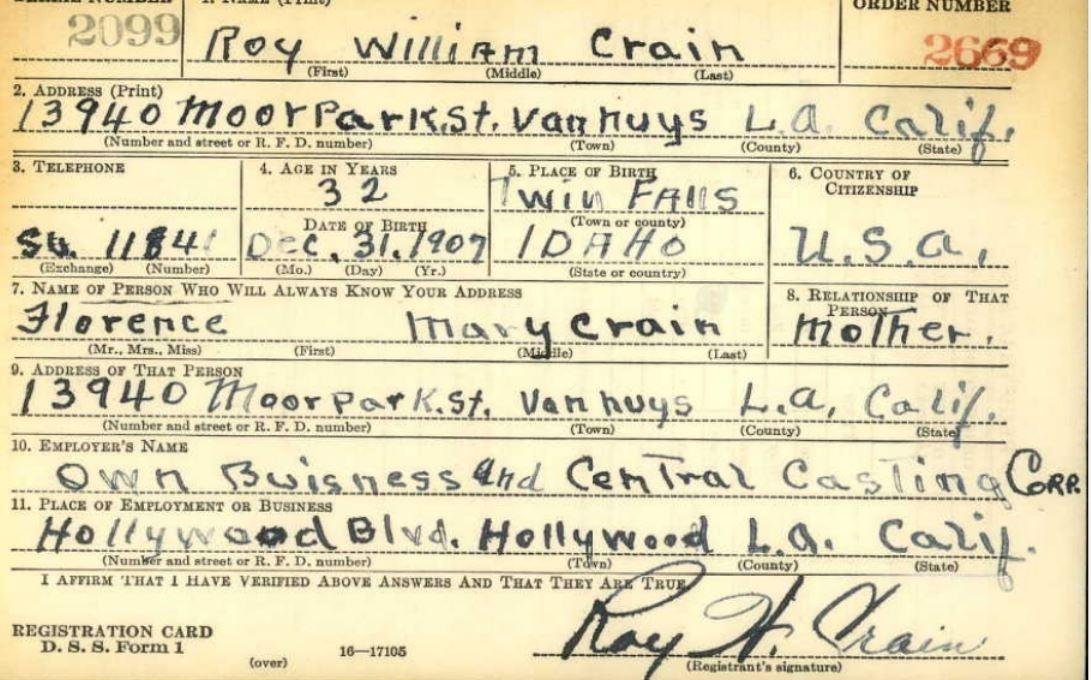 SERIAL NUMBER 1. NAME (Print) ORDER NUMBER
2099 Roy William Crain 2669
(First) (Middle) (Last)
2. ADDRESS (Print)
13940 Moorpark.St. Van nuys L.A. Calif.
(Number and street or R. F. D. number) (Town) (County) (State)
3. TELEPHONE 4. AGE IN YEARS 5. PLACE OF BIRTH 6. COUNTRY OF
CITIZENSHIP
32 Twin Falls
DATE OF BIRTH (Town or county)
Dec. 31. 1907 IDAHO U.S.A.
(Exchange) (Number) (Mo.) (Day) (Yr.) (State or country)
7. NAME OF PERSON WHO WILL ALWAYS KNOW YOUR ADDRESS 8. RELATIONSHIP OF THAT
PERSON
Florence Mary Crain Mother.
(Mr., Mrs., Miss) (First) (Middle) (Last)
9. ADDRESS OF THAT PERSON
13940 Moorpark.St. Van nuys L.A. Calif.
(Number and street or R. F. D. number) (Town) (County) (State)
10. EMPLOYER'S NAME
Own Buisness and Central Casting Corp.
11. PLACE OF EMPLOYMENT OR BUSINESS
Hollywood Blvd. Hollywood L.A. Calif.
(Number and street or R. F. D. number) (Town) (County) (State)
I AFFIRM THAT I HAVE VERIFIED ABOVE ANSWERS AND THAT THEY ARE TRUE
REGISTRATION CARD
D. S. S. Form 1
(over) 16—17105
Roy W. Crain
(Registrant's signature)